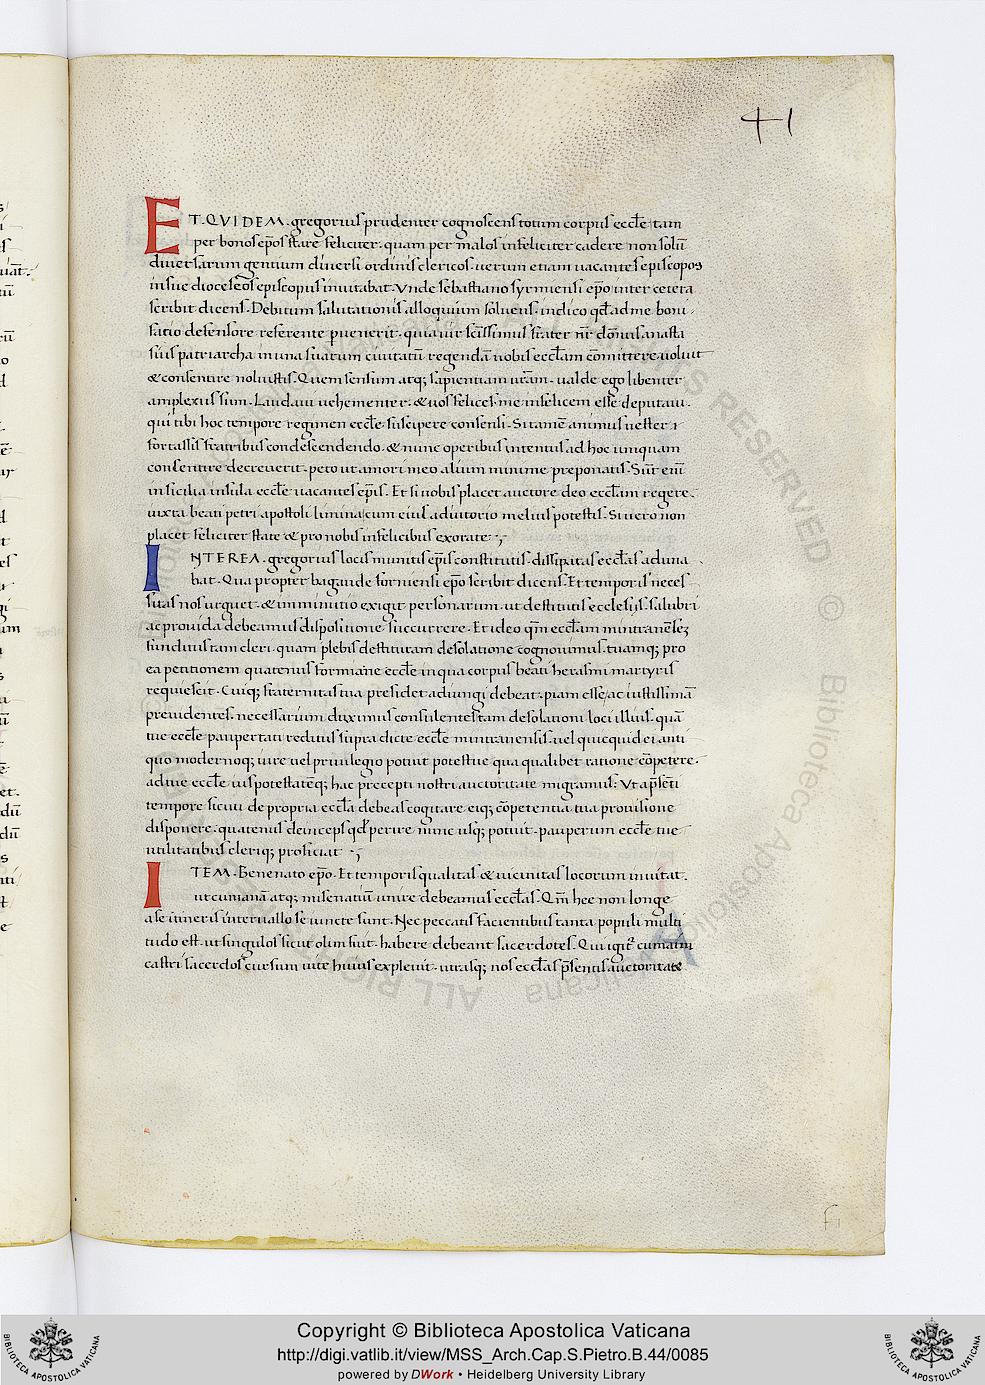 41
ET. QVIDEM. gregorius prudenter cognoscens totum corpus eccl̄e tam
per bonos ep̄os stare feliciter. quam per malos infeliciter cadere non solū
diuersarum gentium diuersi ordinis clericos. uerum etiam uacantes episcopos
in sue dioceseos episcopus inuitabat. Vnde sebastiano syrmiensi ep̄o inter cetera
scribit dicens. Debitum salutationis alloquium soluens. indico qd̄ ad me boni
fatio defensore referente puenerit. quia uir sc̄issimus frater nr̄ don̄us anasta
sius patriarcha in una suarum ciuitatū regendā uobis eccl̄am cōmittere uoluit
& consentire noluistis. Quem sensum atq; sapientiam ur̄am. ualde ego libenter
amplexus sum. Laudaui uehementer. & uos felices. me infelicem esse deputaui.
qui tibi hoc tempore regimen eccl̄e suscipere consensi. Si tam̄ animus uester
fortassis fratribus condescendendo. & nunc operibus intentus ad hoc umquam
consentire decreuerit. peto ut amori meo alium minime preponatis. Sūt eni̅
in sicilia insula eccl̄e uacantes ep̄is. Et si uobis placet auctore deo eccl̄am regere.
iuxta beati petri apostoli limina cum eius adiutorio melius potestis. Si uero non
placet feliciter state & pro nobis infelicibus exorate.
INTEREA. gregorius locis munitis ep̄is constitutis. dissipatas eccl̄as aduna
bat. Qua propter bagaude formensi ep̄o scribit dicens. Et temporis neces
sitas nos urguet. & imminutio exigit personarum. ut destitutis ecclesiis. salubri
ac prouida debeamus dispositione succurrere. Et ideo qm̄ eccl̄am mintranēsē
funditus tam cleri. quam plebis destitutam desolatione cognouimus. tuamq; pro
ea petitionem quatenus formiane eccl̄e in qua corpus beati herasmi martyris
requiescit. Cuiq; fraternitas tua presidet adiungi debeat. piam esse ac iustissimā
preuidentes. necessarium duximus consulentes tam desolationi loci illius. quā
tue eccl̄e paupertati reditus supra dicte eccl̄e mintranensis. uel quicquid ei anti
quo modernoq; iure uel priuilegio potuit potestue qua qualibet ratione cōpetere.
ad tue eccl̄e ius potestatēq; hac precepti nostri auctoritate migramus. Vt a psēti
tempore sicuti de propria eccl̄ia debeas cogitare eiq; cōpetentia tua prouisione
disponere. quatenus deinceps qd̄ perire nunc usq; potuit. pauperum eccl̄e tue
utilitatibus cleriq; proficiat
ITEM. Benenato ep̄o. Et temporis qualitas & uicinitas locorum inuitat.
ut cumanā atq; misenatiū unire debeamus eccl̄as. Qm̄ hee non longe
a se itineris interuallo seiuncte sunt. Nec peccatis facientibus tanta populi multi
tudo est. ut singulos sicut olim fuit. habere debeant sacerdotes. Qui igit̄ cumani
castri sacerdos cursum uite huius expleuit. utrasq; nos eccl̄as p̄sentis auctoritate
Copyright © Biblioteca Apostolica Vaticana
http://digi.vatlib.it/view/MSS_Arch.Cap.S.Pietro.B.44/0085
powered by DWork • Heidelberg University Library